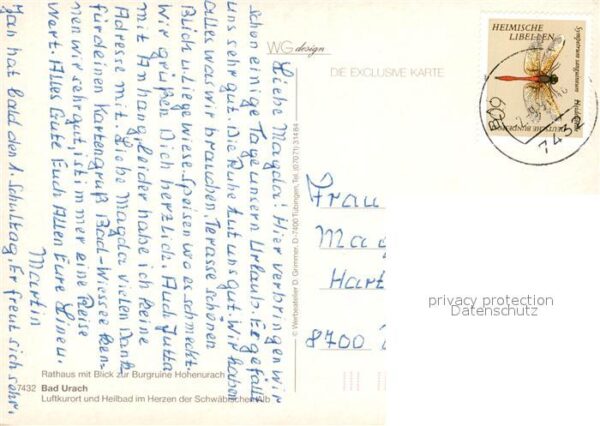 WG design
DIE EXCLUSIVE KARTE
HEIMISCHE
LIBELLEN
Sympetrum sanguineum
DEUTSCHE BUNDESPOST
7432
BAD
Liebe Magda! Hier verbringen wir
schon einige Tage unsern Urlaub. Es gefällt
uns sehr gut. Die Ruhe tut uns gut. Wir haben
alles was wir brauchen. Terasse schönen
Blick u. Liegewiese. Speisen wo es schmeckt.
Wir grüßen Dich herzlich. Auch Jutta
mit Anhang, leider habe ich keine
Adresse mit. Liebe Magda vielen Dank
für deinen Kartengruß Bad-Wiessee ken-
nen wir sehr gut, ist immer eine Reise
Wert. Alles Gute Euch Allen Eure
Martin
Jan hat bald den 1. Schultag. Er freut sich sehr.
Frau
Mag
Hart
8700
privacy protection
Datenschutz
© Werbeatelier D. Grimmer, D-7400 Tübingen, Tel. (07071) 31464
Rathaus mit Blick zur Burgruine Hohenurach
7432 Bad Urach
Luftkurort und Heilbad im Herzen der Schwäbischen Alb